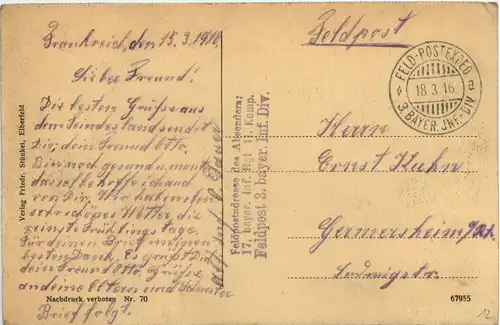 Frankreich, den 15.3.1916.
Lieber Freund!
Die besten Grüsse aus
dem Feindesland sendet
Dir, dein Freund Otto.
Bin noch gesund u. munter
dasselbe hoffe ich auch
von Dir. Wir haben eben
sehr schönes Wetter, die
reinste Frühlingstage.
Für deinen Brief meinen
besten Dank. Es grüßt Dich
dein Freund Otto. Grüsse
an deine Eltern und Schwester
Brief folgt.
Verlag Friedr. Stünkel, Elberfeld
Nachdruck verboten Nr. 70
Feldpostadresse des Absenders:
17. bayer. Inf. Rgt 11. Komp.
Feldpost 3. bayer. Inf. Div.
Feldpost
FELD-POSTEXPED
a
18.3.16.
3. BAYER. INF.-DIV
Herrn
Ernst Kuhn
Germersheim a/Rh.
Ludwigstr.
67955
12